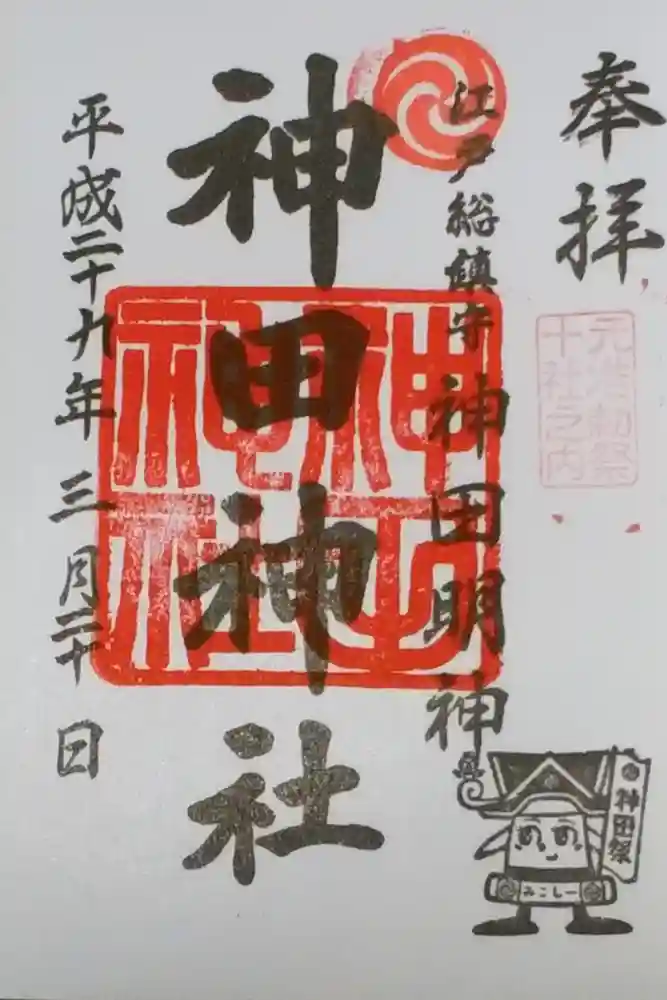 奉拝
元准勅祭
十社之内
江戸総鎮守
神田明神
神田神社
神田神社
平成二十九年三月二十日
神田祭
みこしー